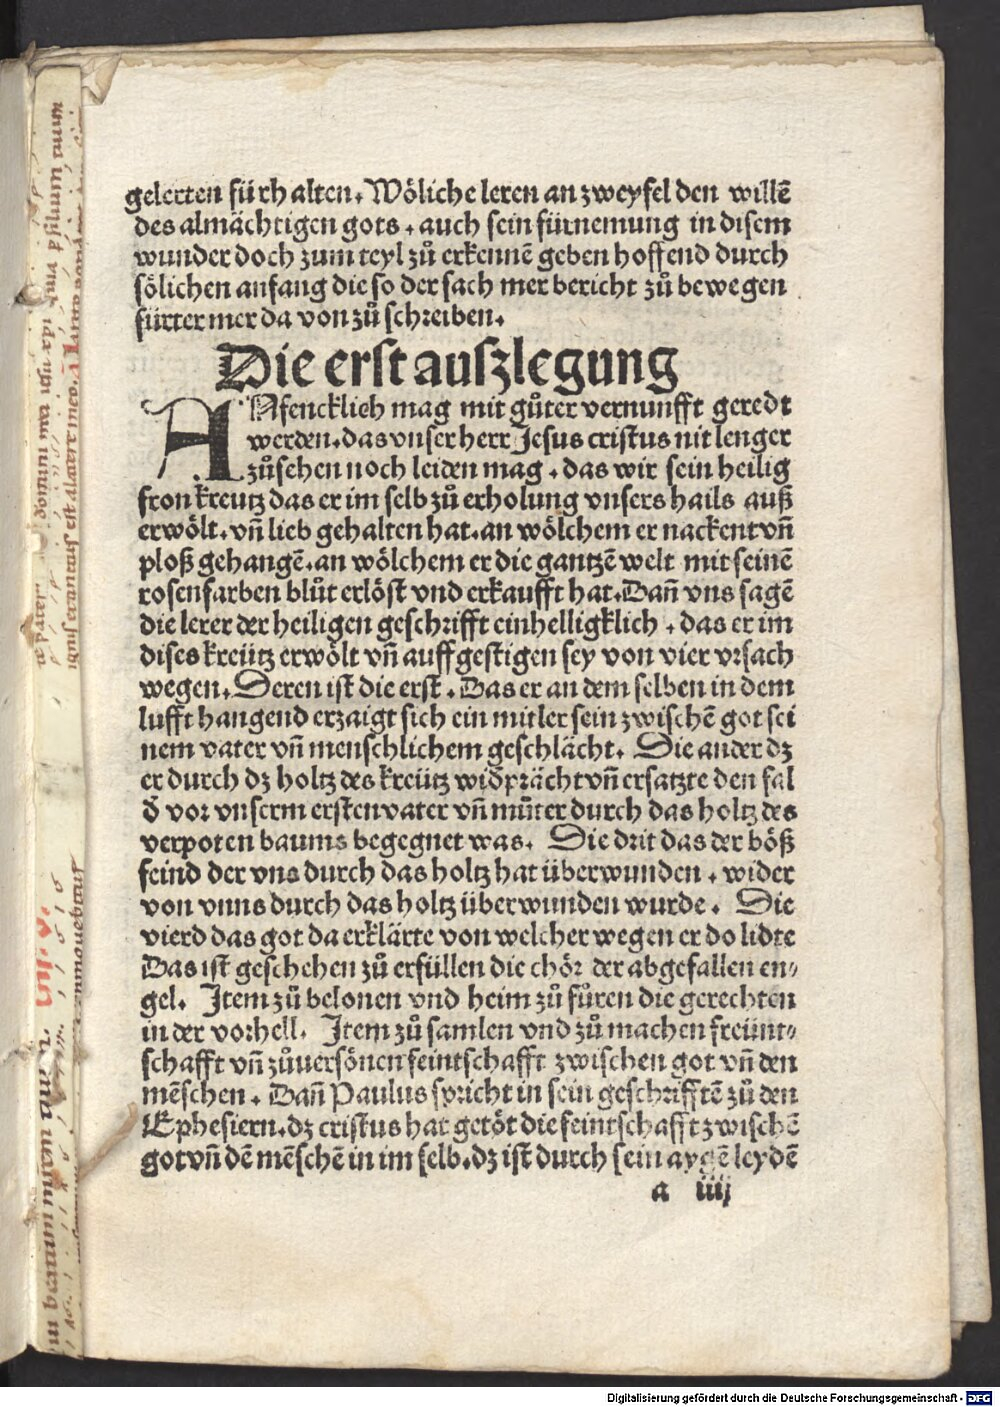 gelerten fürhalten. Wöliche leren an zweyfel den willē
des almächtigen gots . auch sein fürnemung in disem
wunder doch zum teyl zů erkennē geben hoffend durch
sölichen anfang die so der sach mer bericht zů bewegen
fürter mer da von zů schreiben.
Die erst auszlegung
ANfencklich mag mit gůter vernunfft geredt
werden. das vnser herr Jesus cristus nit lenger
zůsehen noch leiden mag . das wir sein heilig
fron kreutz das er im selb zů erholung vnsers hails auß
erwölt. vn̄ lieb gehalten hat. an wölchem er nackent vn̄
ploß gehangē. an wölchem er die gantzē welt mit seinē
rosenfarben blůt erlöst vnd erkaufft hat. Dan̄ vns sagē
die lerer der heiligen geschrifft einhelligklich . das er im
dises kreütz erwölt vn̄ auff gestigen sey von vier vrsach
wegen. Deren ist die erst . Das er an dem selben in dem
lufft hangend erzaigt sich ein mitler sein zwischē got sei
nem vater vn̄ menschlichem geschlächt. Die ander dz
er durch dz holtz des kreütz wid̄prächt vn̄ ersatzte den fal
d̄ vor vnserm ersten vater vn̄ můter durch das holtz des
verpoten baums begegnet was. Die drit das der böß
feind der vns durch das holtz hat überwunden . wider
von vnns durch das holtz überwunden wurde . Die
vierd das got da erklärte von welcher wegen er do lidte
Das ist geschehen zů erfüllen die chör der abgefallen en⸗
gel. Item zů belonen vnd heim zů fůren die gerechten
in der vorhell. Item zů samlen vnd zů machen freünt⸗
schafft vn̄ zůuersönen feintschafft zwischen got vn̄ den
mēschen . Dan̄ Paulus spricht in sein geschrifftē zů den
Ephesiern. dz cristus hat getöt die feintschafft zwischē
got vn̄ dē mēschē in im selb. dz ist durch sein aygē leydē
a iiij
Digitalisierung gefördert durch die Deutsche Forschungsgemeinschaft - DFG